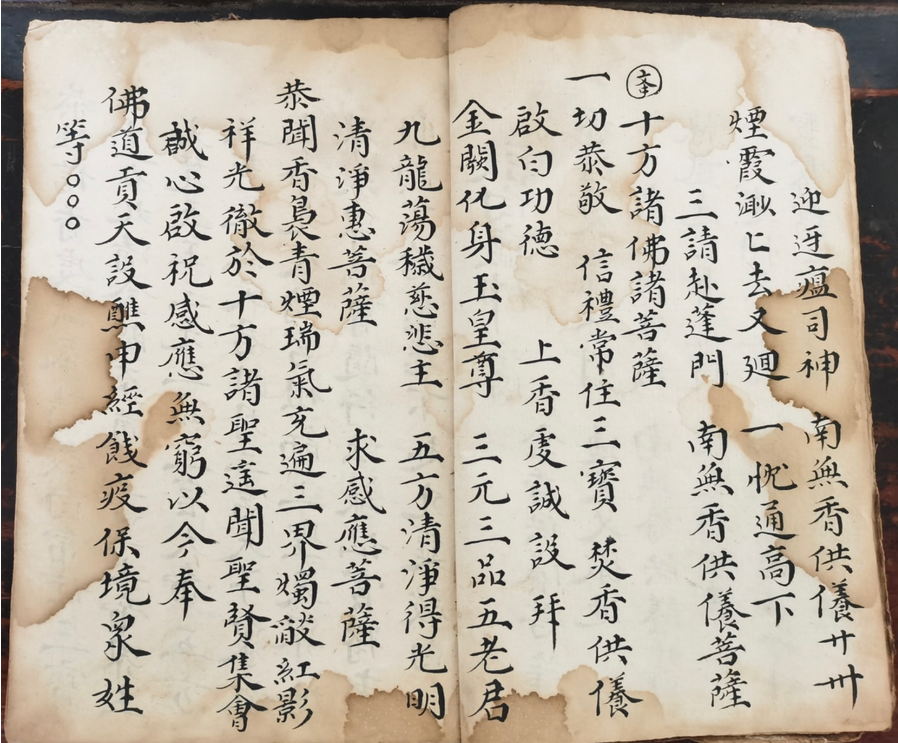 迎迓瘟司神　南無香供儀卄卌
煙霞渺匕去又廻　一忱通高下
三請赴蓬門　南無香供儀菩薩
十方諸佛諸菩薩
一切恭敬　信禮常住三寶　焚香供儀
啟白功德　上香虔誠設拜
金闕化身玉皇尊　三元三品五老君
九龍蕩穢慈悲主　五方清淨得光明
清淨惠菩薩　求感應菩薩
恭聞香裊青煙瑞氣充遍三界燭敲紅影
祥光徹於十方諸聖遥聞聖賢集會
誠心啟祝感應無窮以今奉
佛道貢天設醮申經餞疫保境衆姓
等○○○